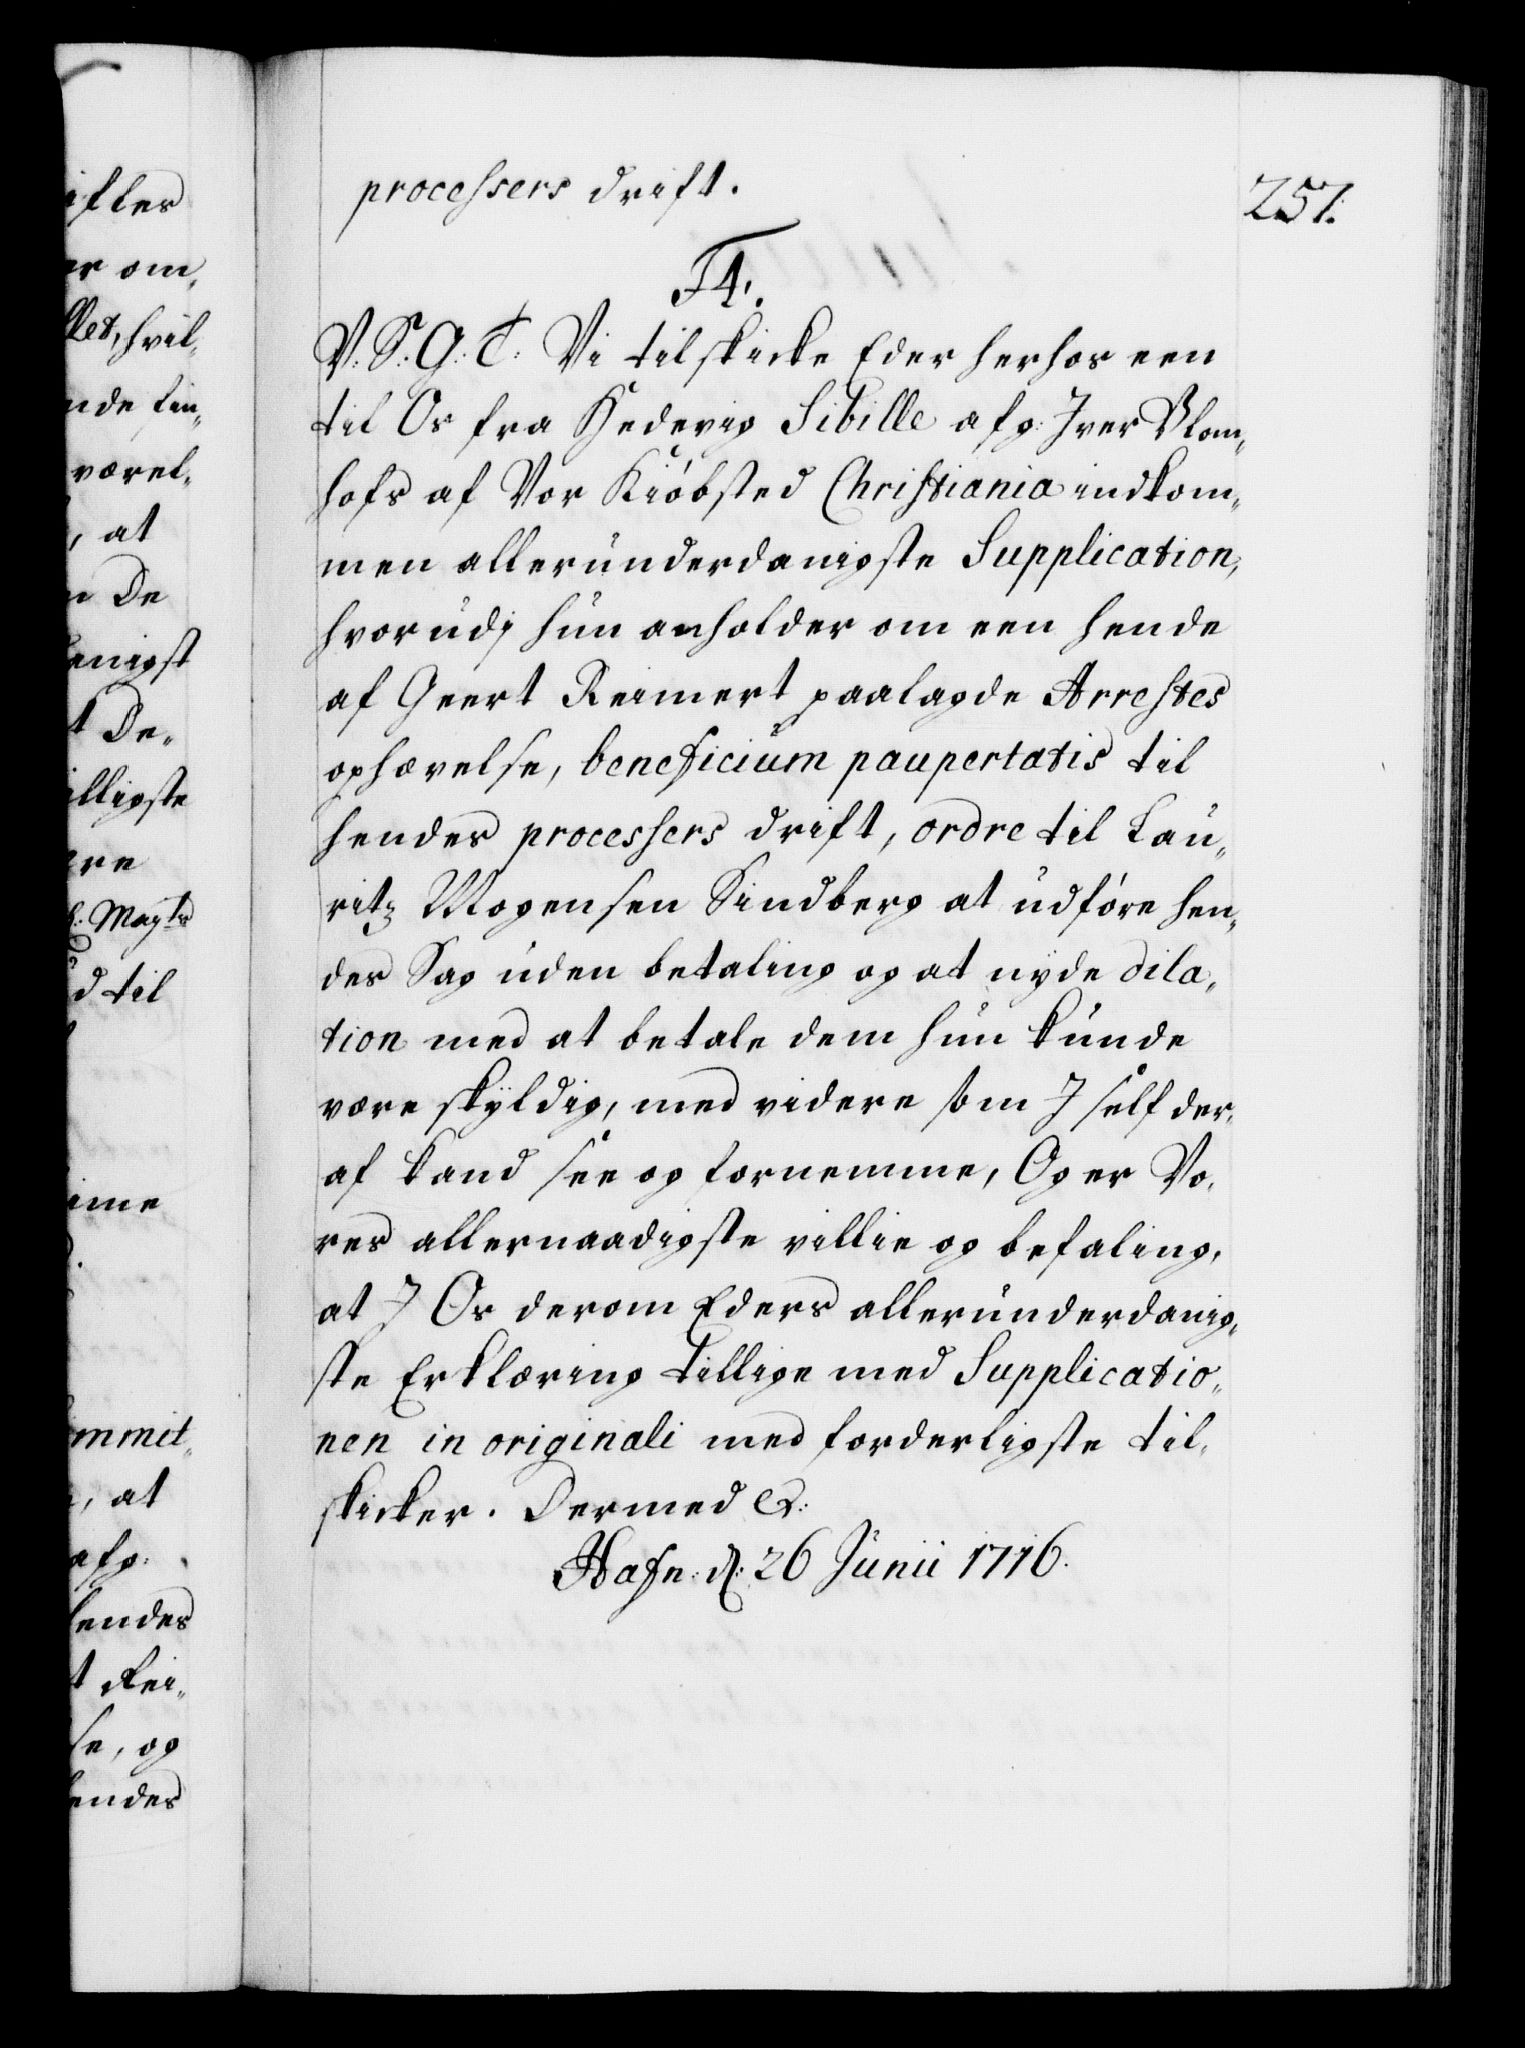 processers drift.
257.
F4.
V: S: G: T: Vi tilskicke Eder herhos een
til Os fra Hedevig Sibille afg: Iver Blom„
hofs af Vor Kióbsted Christiania indkom„
men allerunderdanigste Supplication,
hvorudj hun anholder om een hende
af Geert Reimert paalagde Arrestes
ophævelse, beneficium paupertatis til
hendes processers drift, ordre til Lau„
ritz Mogensen Sindberg at udfóre hen„
des Sag uden betaling og at nyde dila„
tion med at betale dem hun kunde
være skÿldig, med videre som I self der„
af kand see og fornemme, Og er Vo„
res allernaadigste villie og befaling,
at I Os derom Eders allerunderdanig„
ste Erklæring tillige med Supplicatio„
nen in originali med forderligste til„
skicker. Dermed &:
Hafn: d: 26 Junii 1716.
ifter
er om„
llet, hvil„
nde fin„
værel„
, at
n De
enigst
t De„
illigste
ere
K: Mayts
d til
ime
ommit„
, at
afg:
hendes
t Rei„
se, og
hendes